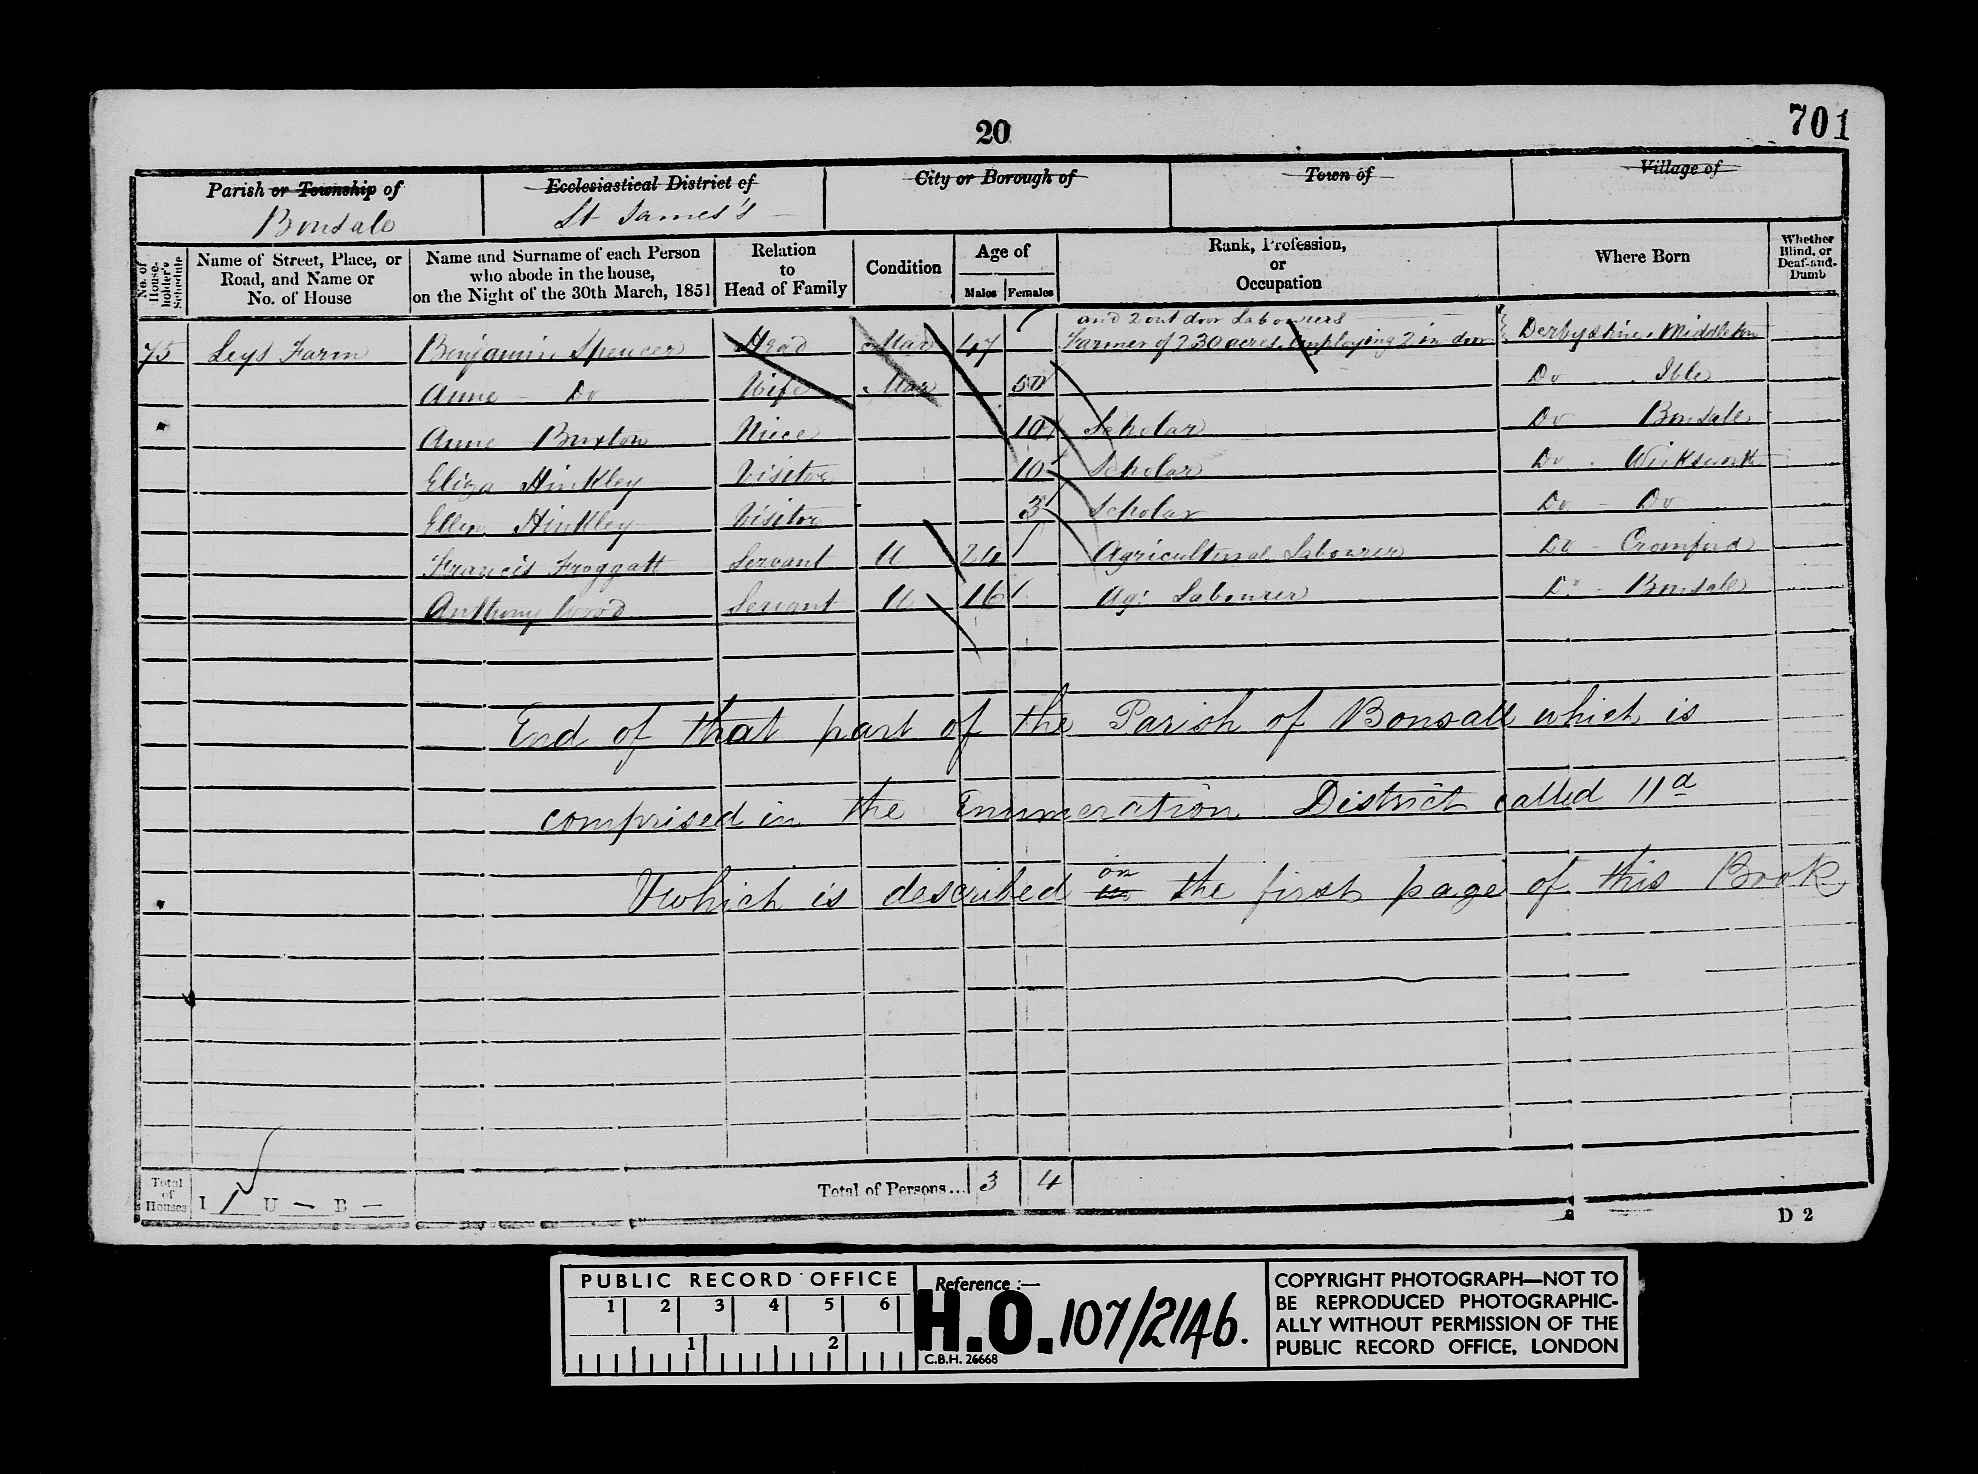 20
701
Parish or Township of
Bonsale
Ecclesiastical District of
St James's
City or Borough of
Town of
Village of
No. of House-holder's Schedule
Name of Street, Place, or Road, and Name or No. of House
Name and Surname of each Person who abode in the house, on the Night of the 30th March, 1851
Relation to Head of Family
Condition
Age of
Males Females
Rank, Profession, or Occupation
Where Born
Whether Blind, or Deaf-and-Dumb
and 2 out door Labourers
75 Leys Farm Benjamin Spencer Head Mar 47 Farmer of 230 acres employing 2 in door Derbyshire Middleton
Anne Do Wife Mar 50 Do Ible
Anne Buxton Niece 10 Scholar Do Bonsale
Eliza Hinkley Visitor 10 Scholar Do Wirksworth
Ellen Hinkley Visitor 3 Scholar Do Do
Francis Froggatt Servant U 24 Agricultural Labourer Do Cromford
Anthony Wood Servant U 16 Ag: Labourer Do Bonsale
End of that part of the Parish of Bonsall which is
comprised in the Enumeration District called 11a
Which is described on the first page of this Book
Total of Houses I 1 U — B —
Total of Persons... 3 4
D 2
PUBLIC RECORD OFFICE
1 2 3 4 5 6
1 2
Reference :—
H.O. 107/2146.
C.B.H. 26668
COPYRIGHT PHOTOGRAPH—NOT TO
BE REPRODUCED PHOTOGRAPHIC-
ALLY WITHOUT PERMISSION OF THE
PUBLIC RECORD OFFICE, LONDON